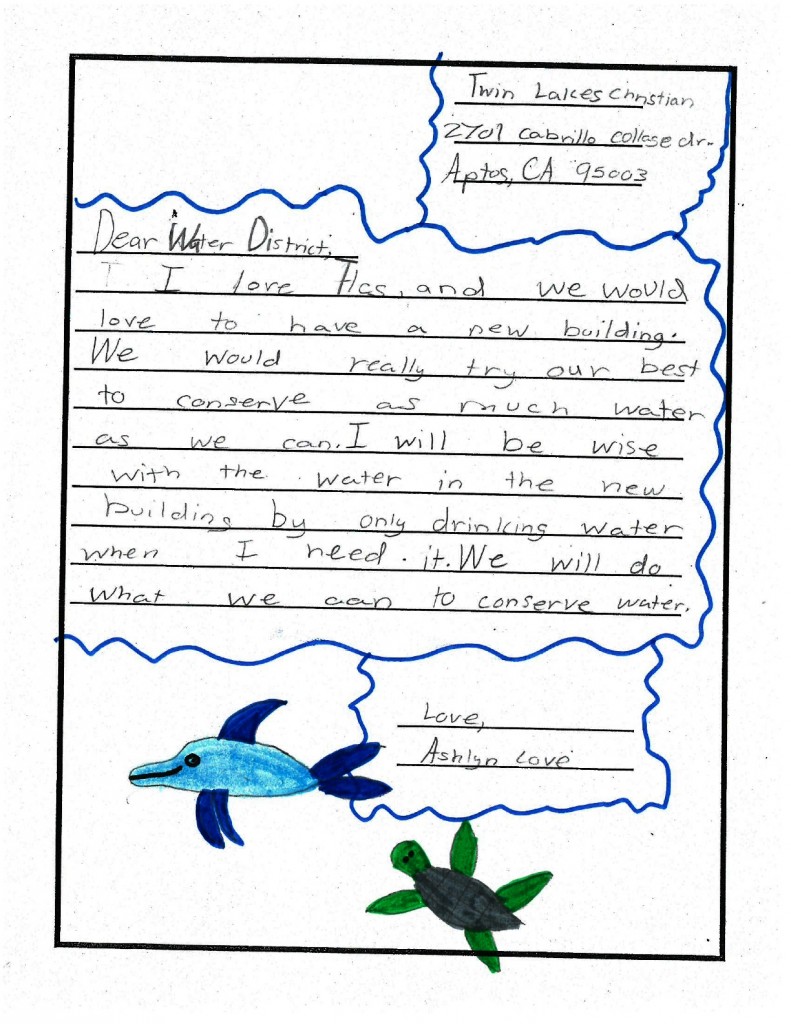 Twin Lakes Christian
2701 Cabrillo college dr.
Aptos, CA 95003
Dear Water District,
I love Tlcs, and we would
love to have a new building.
We would really try our best
to conserve as much water
as we can. I will be wise
with the water in the new
building by only drinking water
when I need it. We will do
what we can to conserve water.
Love,
Ashlyn Love